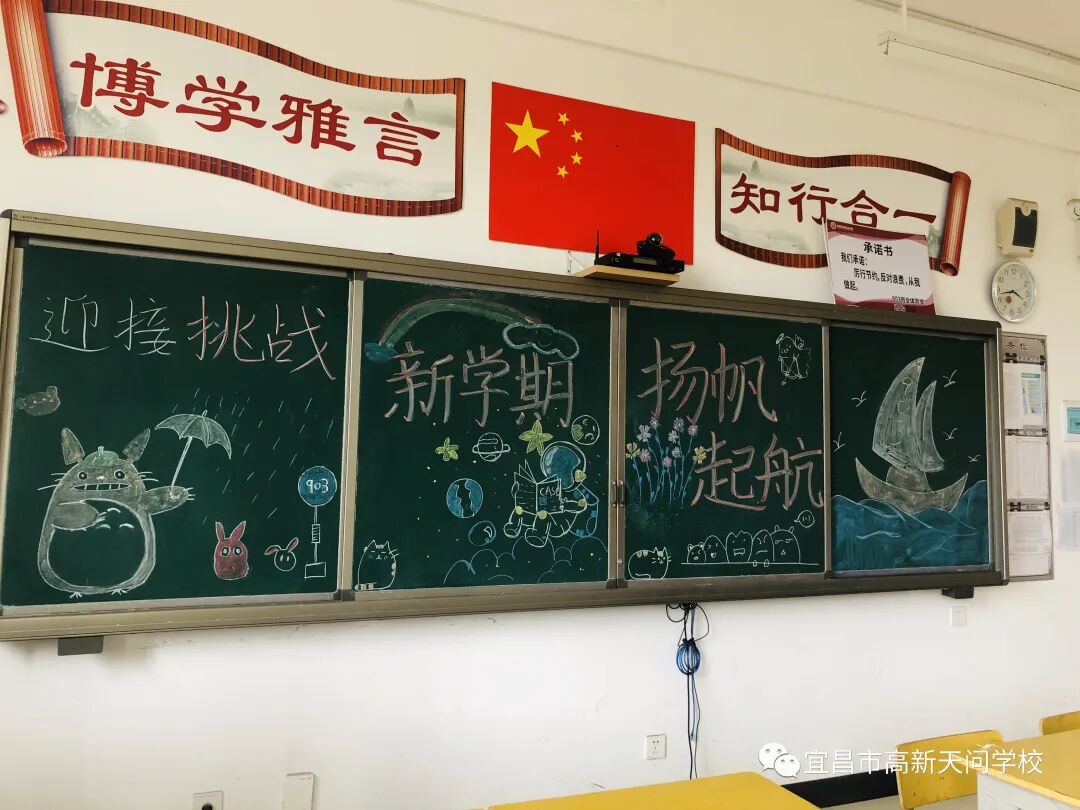 博学雅言
知行合一
承诺书
我们承诺：
厉行节约，反对浪费，从我
做起。
迎接挑战
新学期
扬帆
起航
903
CASE
务栏
宜昌市高新天问学校